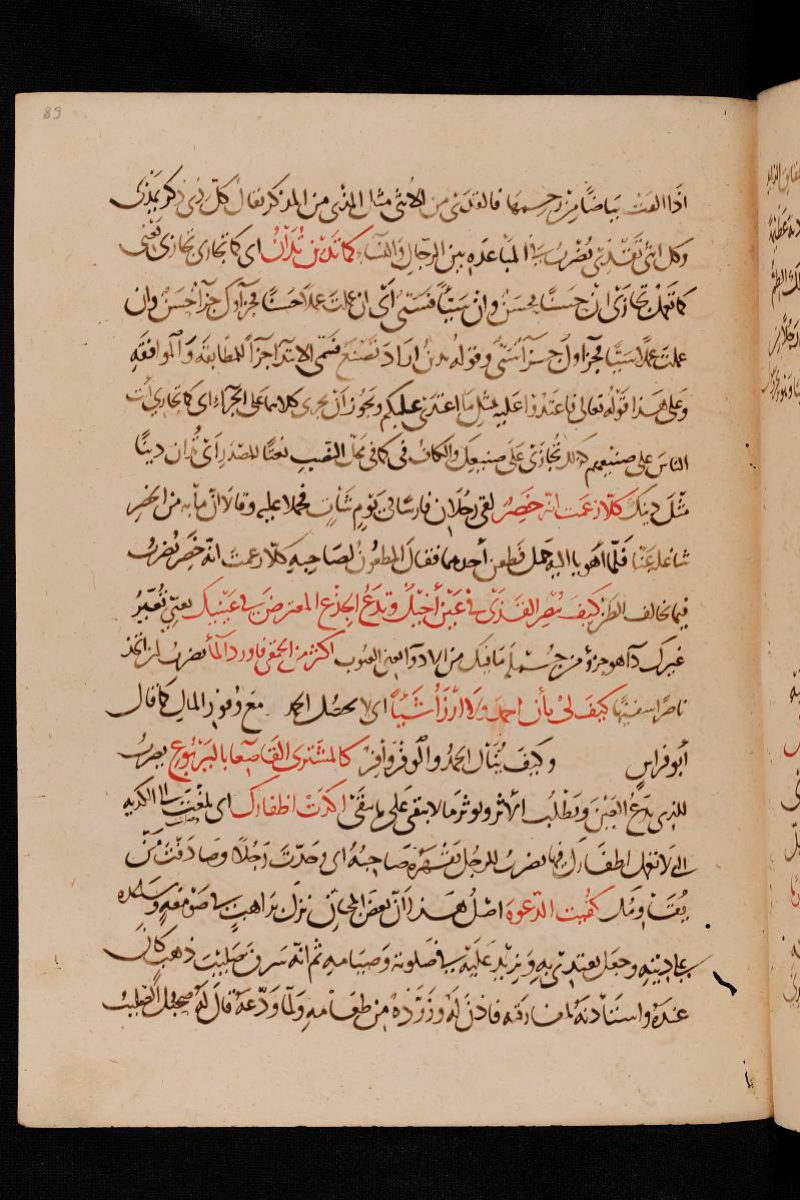 89
اذا القت بياضا من رحمها فالقذى من الانثى مثال المذى من الذكر يقال كل ذى ذكر يمذى
وكل انثى تقذى يضرب فى المباعده بين الرجال والنساء كما تدين تدان اى كما تجازى تجازى يعنى
كما تعمل تجازى ان حسنا فحسن وان سيئا فسيئ اى ان عملت عملا حسنا فجزاوك جزآ حسن وان
عملت عملا سيئا فجزاوك جزآ سيئ وقوله تدين اراد تصنع فسمى الابتدا جزآ للمطابقه والموافقه
وعلى هذا قوله تعالى فاعتدوا عليه بمثل ما اعتدى عليكم ويجوز ان يجرى كلاهما على الجزآ اى كما تجازى انت
الناس على صنيعهم كذلك تجازى على صنيعك والكاف فى كما فى محل النصب نعتا للمصدر اى تدان دينا
مثل دينك كلا زعمت انه خصر لقى رجلان فارسا فى يوم شات فحملا عليه وقالا ان ما به من الخصر
شاغله عنا فلما اهويا اليه حمل فطعن احدهما فقال المطعون لصاحبه كلا زعمت انه خصر يضرب
فيما يخالف الظن كيف تبصر القذى فى عين اخيك وتدع الجذع المعترض فى عينيك يعنى تعير
غيرك دآ هو جزؤ من جملة ما فيك من الادوآ يعنى العيوب اكثر من الحمقى فاورد المآ يضرب لمن اتخذ
ناصرا سفيها كيف لى بأن احمد ولا ارزأ شيئا اى لا يحصل الحمد مع وفور المال كما قال
أبو فراس وكيف ينال الحمد والوفر وافر كالمشترى القاصعا باليربوع يضرب
للذى يدع العين ويطلب الاثر ويوثر ما لا يبقى على ما يبقى اكدت اظفارك اى بلغت الى الكديه
التى لا تعمل اظفارك فيها يضرب للرجل يقهره صاحبه اى وجدت رجلا وصادفت من
يقاومك كفيت الدعوة اصل هذا ان بعض المجان نزل براهب فى صومعه وساعده
على دينه وجعل يقتدى به ويزيد عليه فى صلوته وصيامه ثم انه سرق صليب ذهب كان
عنده واستاذنه لمفارقته فاذن له وزوده من طعامه ولما ودعه قال له صحبك الصليب